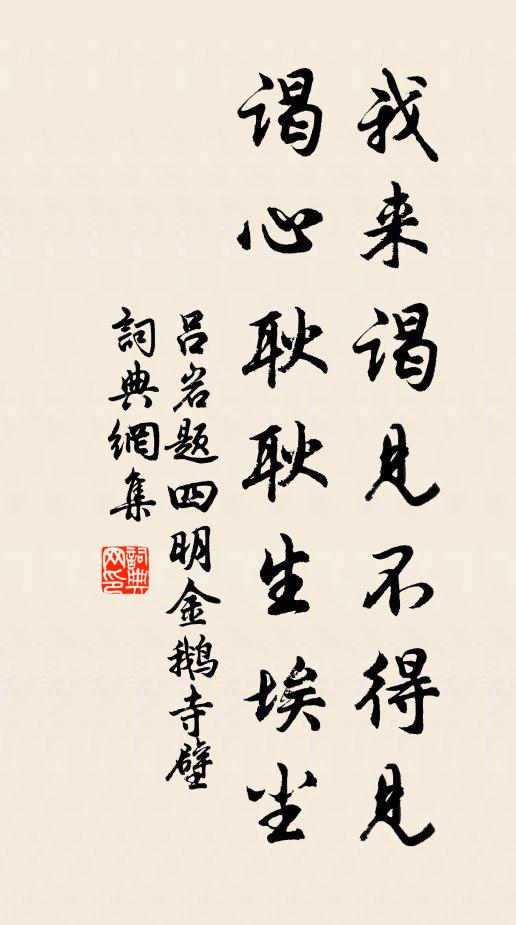 我来谒见不得见
谒心耿耿生埃尘
吕岩题四明金鹅寺壁
詞典網集
詞典网印